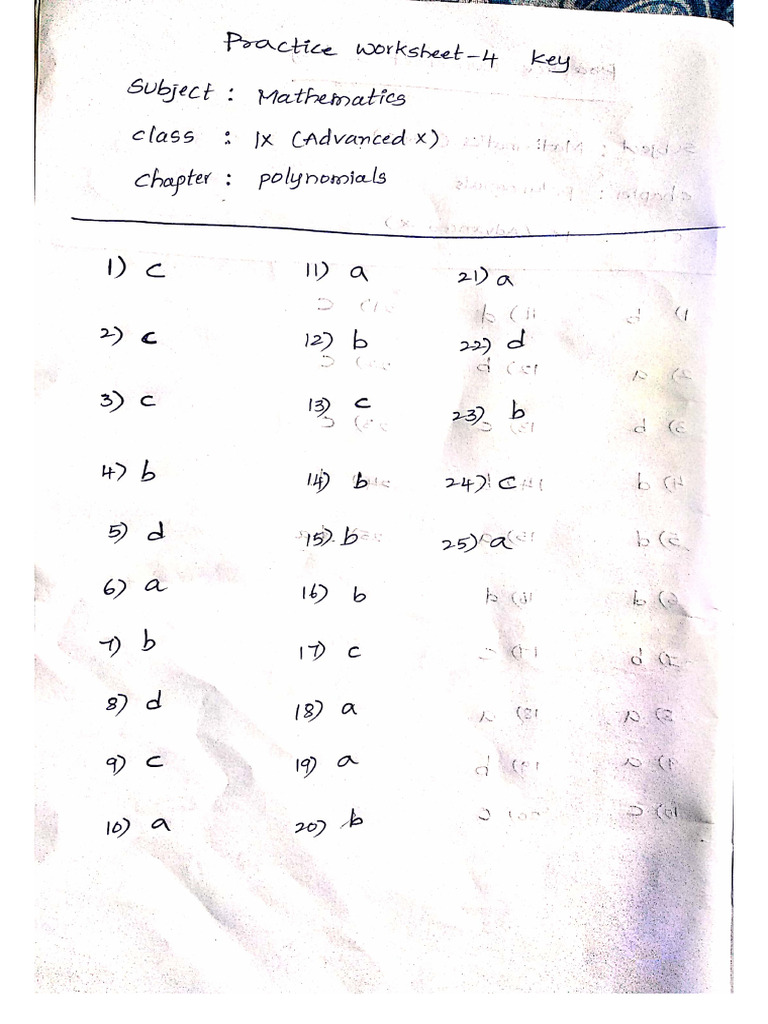 Practice Worksheet-4 Key
Subject : Mathematics
Class : IX (Advanced X)
Chapter : polynomials
1) c 11) a 21) a
2) c 12) b 22) d
3) c 13) c 23) b
4) b 14) b 24) c
5) d 15) b 25) a
6) a 16) b
7) b 17) c
8) d 18) a
9) c 19) a
10) a 20) b